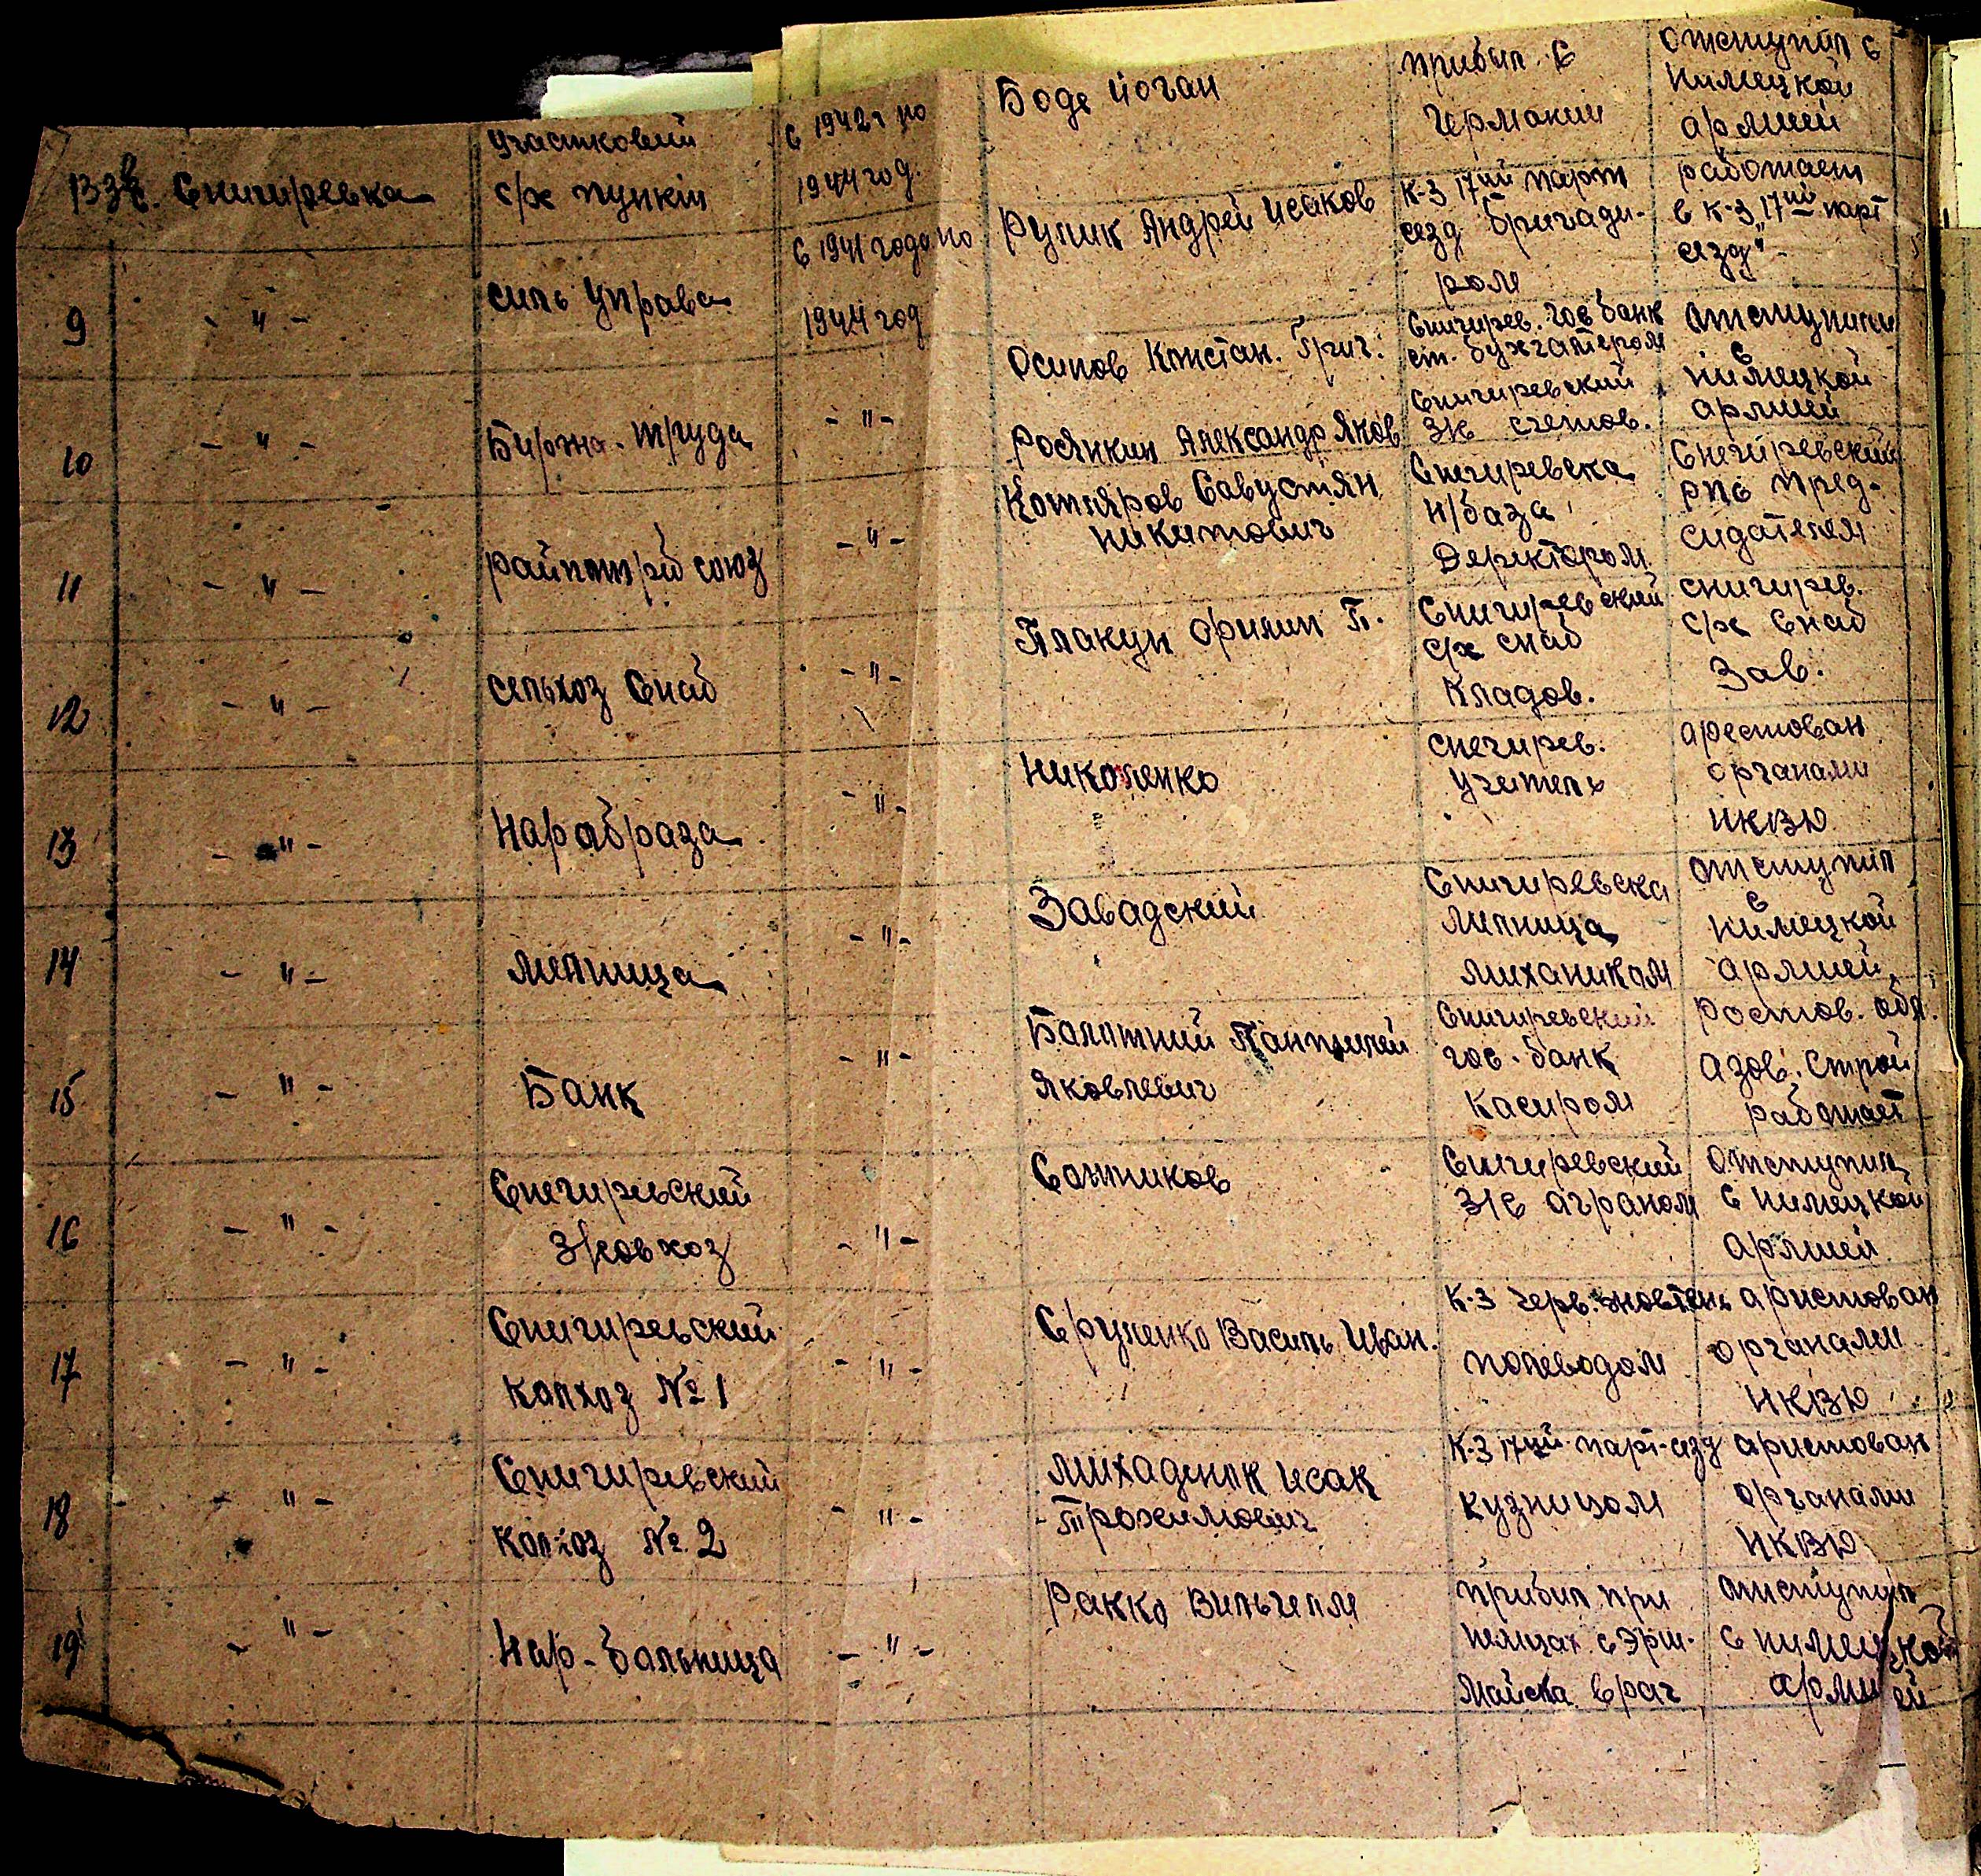 133 Снигиревка Участковий с/х пункт С 1942 г по 1944 год. Боде Йоган прибыл С Германии отступил с нимецкой армией
9 - " - силь Управа С 1941 года по 1944 год Рулик Андрей Исаков К-з 17ий парт сезд бригади- ром работает в К-з 17ий парт сезд"
10 - " - Биржа-труда - " - Осипов Констан. Григ. Снигирев. Гос банк ст. бухгатером отступил С нимецкой армией
Росянкин Александр Яков Снигиревский З/С счетов.
11 - " - райпотрб союз - " - Котляров Савустян никитович Снигиревска Н/база Деректором Снегиревский рпс пред- сидателем
12 - " - сельхоз Снаб - " - Плакун Филип П. Снигиревский с/х снаб Кладов. снигирев. с/х Снаб Зав.
13 - " - Нарабраза - " - Николенко снегирев. учитель арестован органами НКВД
14 - " - мельница - " - Завадский Снигиревска мельница михаником отступил С нимецкой армией
15 - " - Банк - " - Балатний Пантилей Яковлевич Снигиревский гос-банк Касиром Ростов. обл. Азов. Строй работает
16 - " - Снигиревский З/совхоз - " - Сотников Снигиревский З/С аграном отступил с нимецкой армией
17 - " - Снигиревский Колхоз № 1 - " - Василь Иван. К-з черв. жовтень полеводом аристован органами НКВД
18 - " - Снигиревский Колхоз № 2 - " - Исак Трохимович К-з 17ий парт-сезд кузницом аристован органами НКВД
19 - " - Нар-Бальница - " - Ракко Вильгелм Прибил при немцах с врач отступил с нимецкой армией